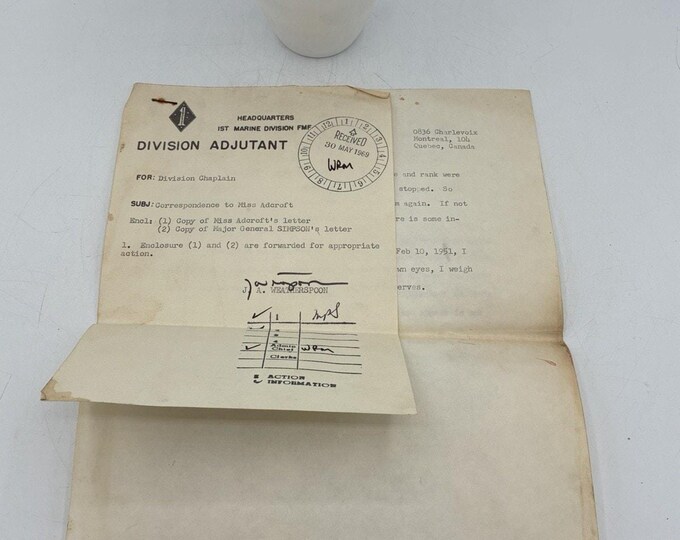 1
HEADQUARTERS
1ST MARINE DIVISION FMF
DIVISION ADJUTANT
RECEIVED
30 MAY 1969
WRM
FOR: Division Chaplain
SUBJ: Correspondence to Miss Adcroft
Encl: (1) Copy of Miss Adcroft's letter
(2) Copy of Major General SIMPSON's letter
1. Enclosure (1) and (2) are forwarded for appropriate
action.
J. A. WEATHERSPOON
Admin
Chief WRM
Clerks
ACTION
INFORMATION
0836 Charlevoix
Montreal, 104
Quebec, Canada
e and rank were
stopped. So
again. If not
re is some in-
Feb 10, 1951, I
wn eyes, I weigh
erves.